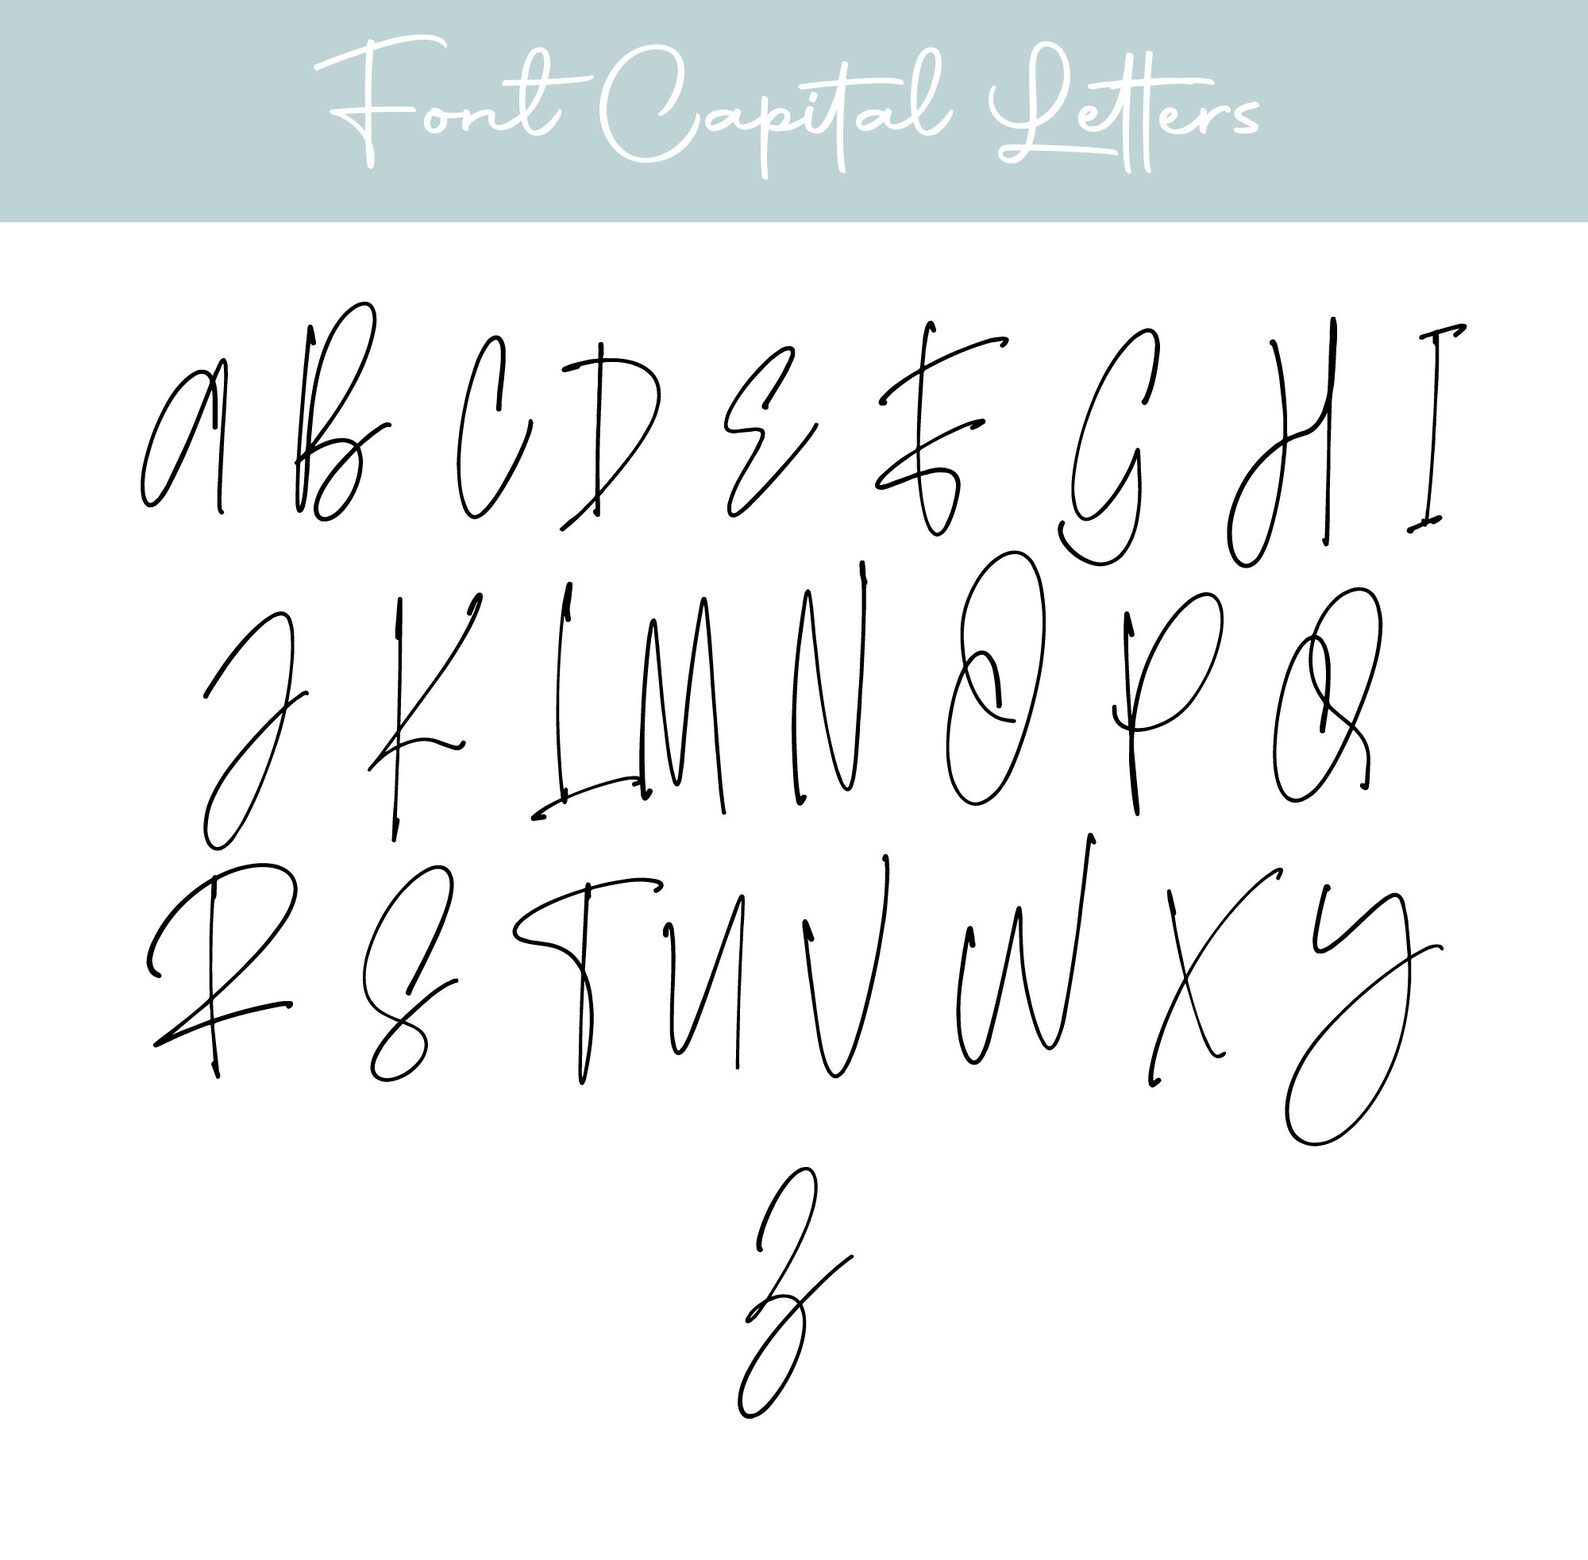 Font Capital Letters
A B C D E F G H I
J K L M N O P Q
R S T U V W X Y
Z